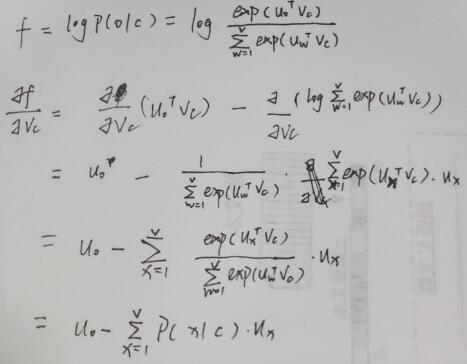 f = log P(o|c) = log exp(u_o^T v_c) / Σ_{w=1}^{V} exp(u_w^T v_c)
∂f/∂v_c = ∂/∂v_c (u_o^T v_c) - ∂/∂v_c (log Σ_{w=1}^{V} exp(u_w^T v_c))
= u_o - 1 / Σ_{w=1}^{V} exp(u_w^T v_c) · Σ_{x=1}^{V} exp(u_x^T v_c) · u_x
= u_o - Σ_{x=1}^{V} exp(u_x^T v_c) / Σ_{w=1}^{V} exp(u_w^T v_c) · u_x
= u_o - Σ_{x=1}^{V} P(x|c) · u_x